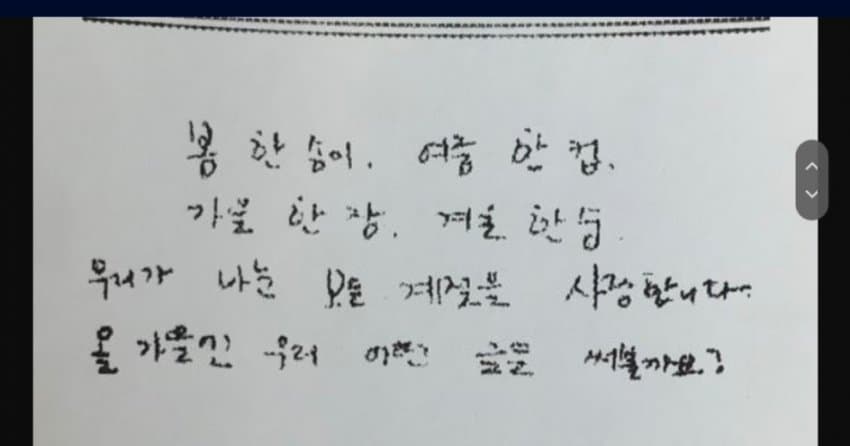 봄 한 송이. 여름 한 컵.
가을 한 장. 겨울 한 숨.
우리가 나눈 모든 계절을 사랑합니다.
올 가을엔 우리 어떤 글을 써볼까요?